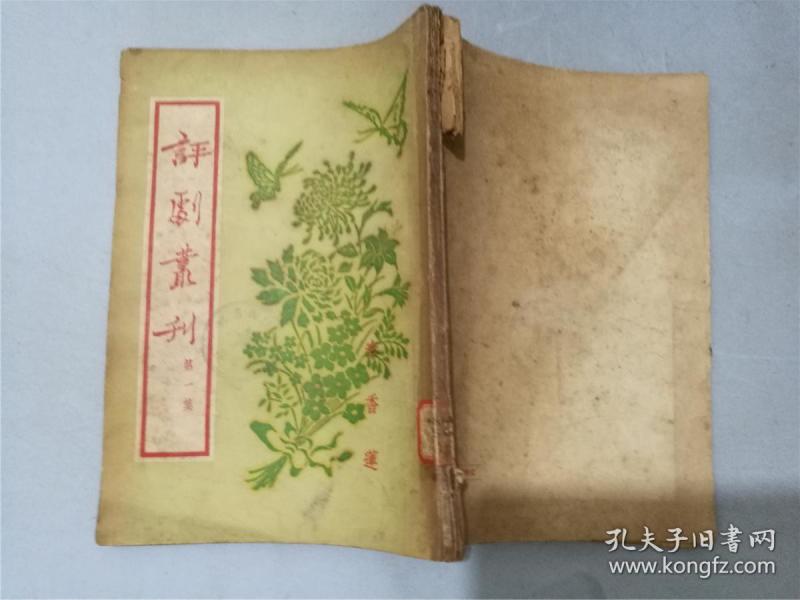 評劇叢刊
第一集
秦香蓮
孔夫子旧書网
www.kongfz.com